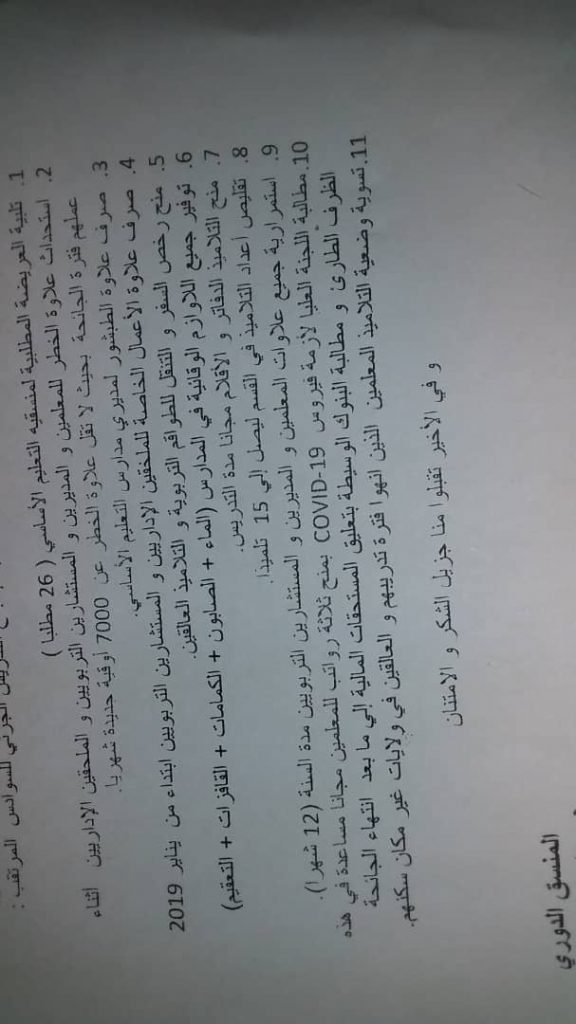 الجزئي للسوادس المرتقب :
1. تلبية العريضة المطلبية لمنسقيه التعليم الأساسي ( 26 مطلبا )
2. استحداث علاوة الخطر للمعلمين و المديرين و المستشارين التربويين و الملحقين الإداريين اثناء
عملهم فترة الجائحة بحيث لا تقل علاوة الخطر عن 7000 أوقية جديدة شهريا.
3. صرف علاوة الطبشور لمديري مدارس التعليم الأساسي.
4. صرف علاوة الأعمال الخاصة للملحقين الإداريين و المستشارين التربويين ابتداء من يناير 2019
5. منح رخص السفر و التنقل للطواقم التربوية و التلاميذ العالقين.
6. توفير جميع اللاوازم الوقائية في المدارس (الماء + الصابون + الكمامات + القافزات + التعقيم)
7. منح التلاميذ الدفاتر و الأقلام مجانا مدة التدريس.
8. تقليص أعداد التلاميذ في القسم ليصل إلي 15 تلميذا.
9. استمرارية جميع علاوات المعلمين و المديرين و المستشارين التربويين مدة السنة (12 شهرا).
10. مطالبة اللجنة العليا لأزمة فيروس COVID-19 بمنح ثلاثة رواتب للمعلمين مجانا مساعدة في هذه
الظرف الطارئ و مطالبة البنوك الوسيطة بتعليق المستحقات المالية إلي ما بعد انتهاء الجائحة
11. تسوية وضعية التلاميذ المعلمين الذين انهوا فترة تدريبهم و العالقين في ولايات غير مكان سكنهم.
و في الأخير تقبلوا منا جزيل الشكر و الامتنان
المنسق الدوري